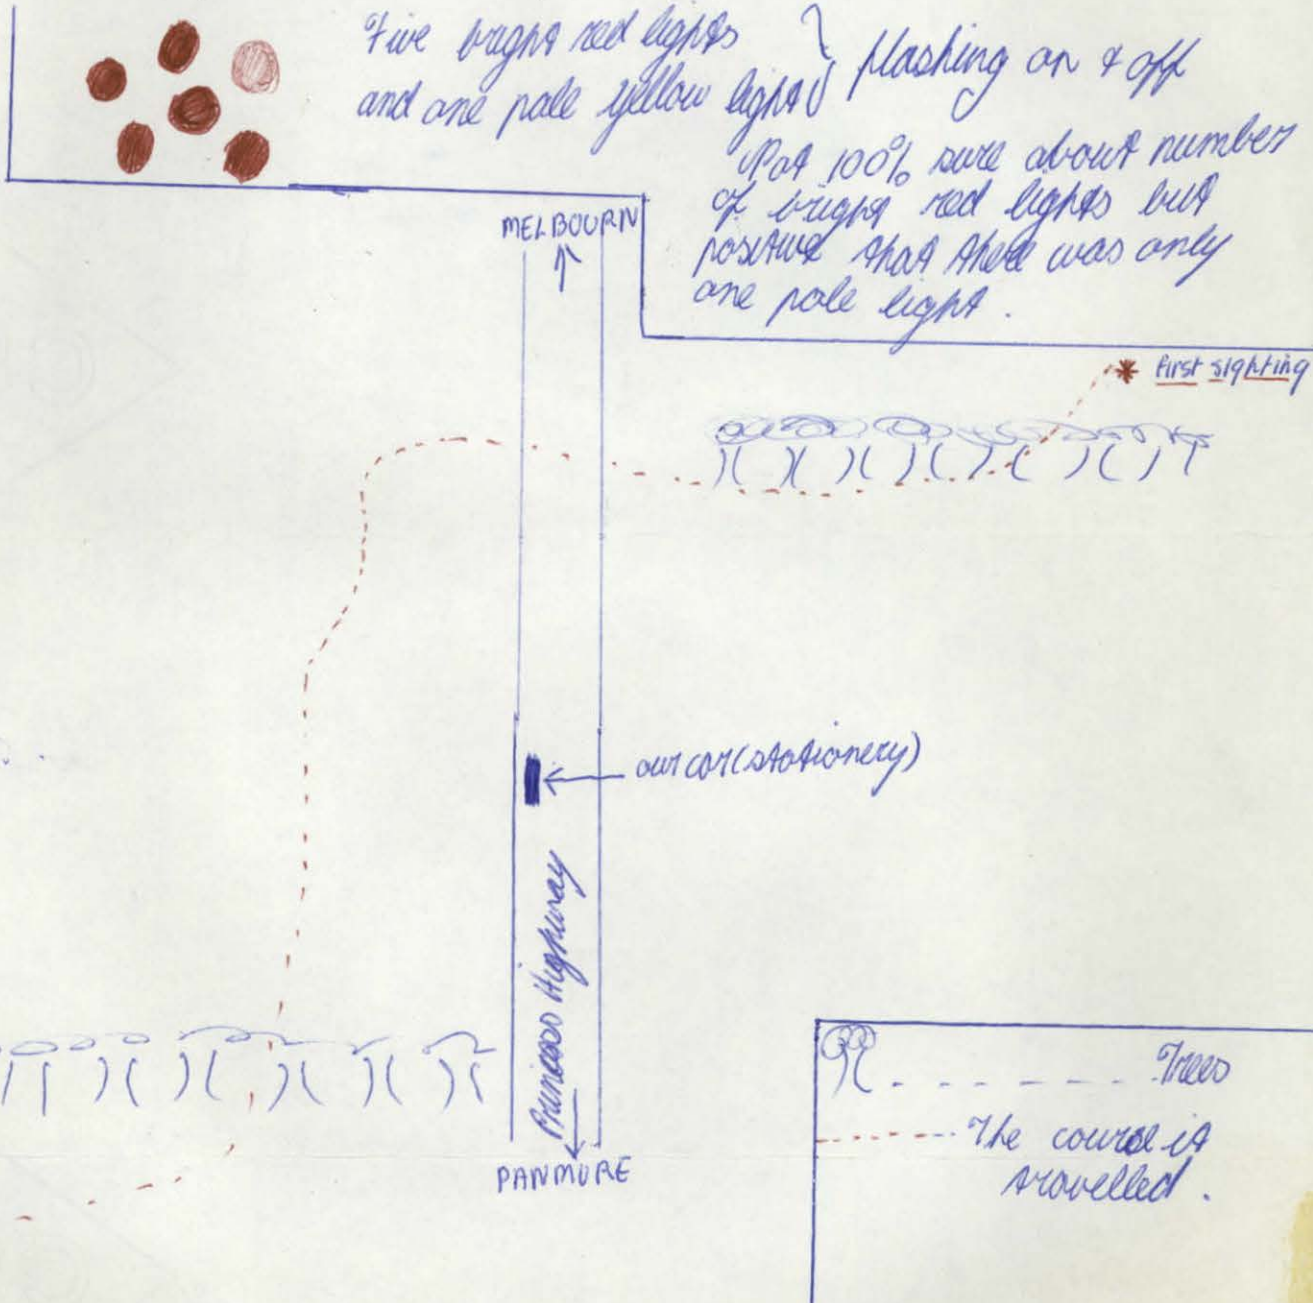 Five bright red lights
and one pale yellow light } flashing on & off
Not 100% sure about number
of bright red lights but
positive that there was only
one pale light.
MELBOURN
first sighting
our car (stationery)
Princess Highway
PANMURE
Trees
The course it
travelled.